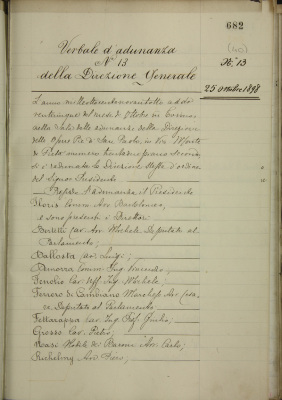 682
(40)
Verbale d'adunanza
N° 13
N. 13
della Direzione Generale
25 ottobre 1898
L'anno milleottocentonovantotto addì
venticinque del mese di Ottobre in Torino
nella sala delle adunanze della Direzione
delle Opere Pie di San Paolo, in Via Monte
di Pietà numero trentadue piano secondo,
si è radunata la Direzione stessa d'ordine
del Signor Presidente.
l'adunanza il Presidente
Floris Comm. Avv. Bartolomeo,
e sono presenti i Direttori:
Cav. Avv. Michele Deputato al
Parlamento;
Ballosta Avv. Luigi;
Comm. Ing.
Fenolio Cav. Uff. Ing. Michele;
Ferrero di Cambiano Marchese Avv. Cesa-
re Deputato al Parlamento;
Fettarappa Cav. Ing. Prof. Giulio;
Grosso Cav. Pietro;
Nasi Nobile dei Baroni Avv. Carlo;
Avv. Piero;